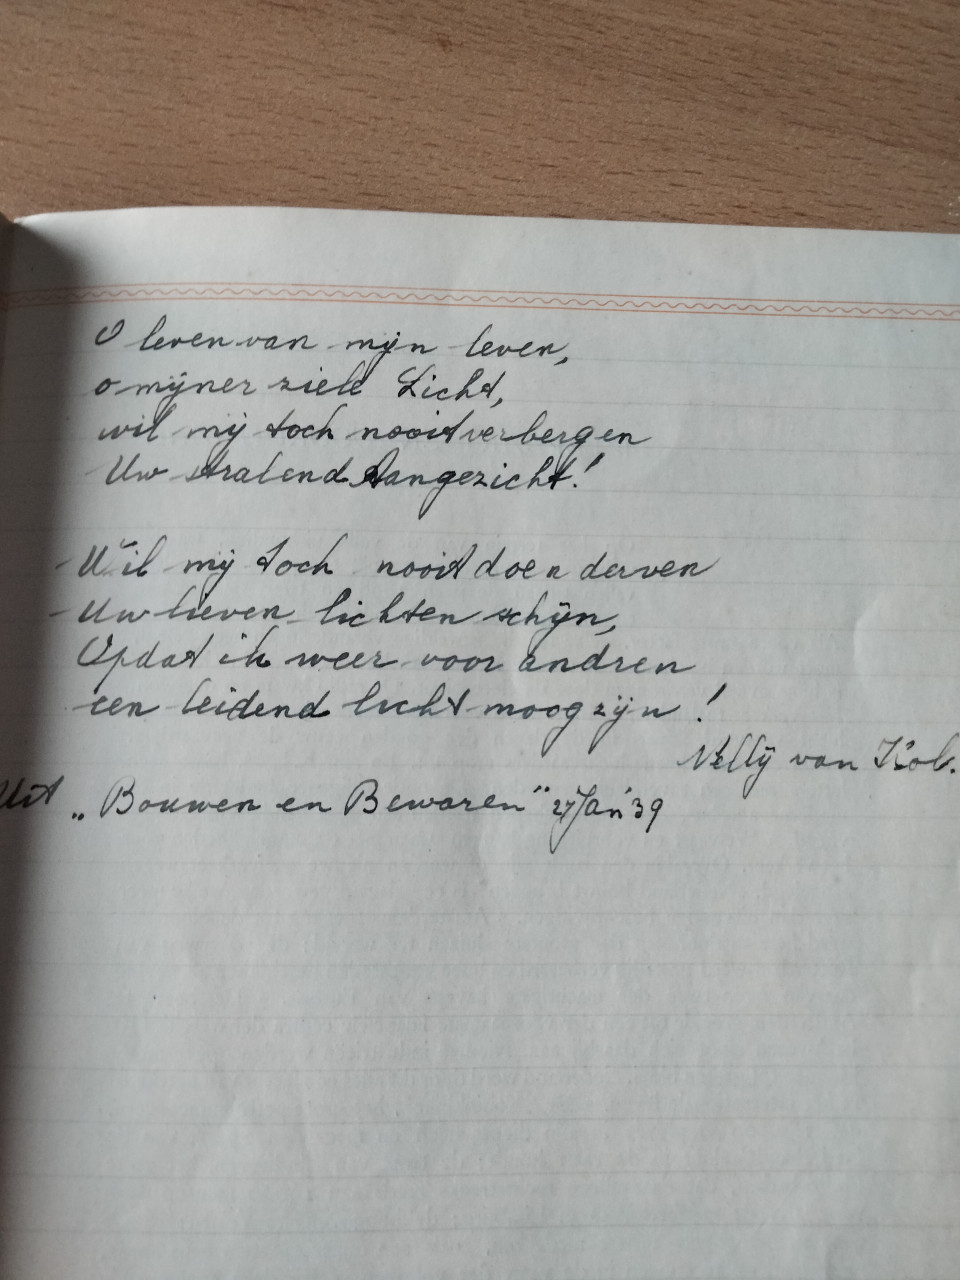 O leven van mijn leven,
o mijner ziele Licht,
wil mij toch nooit verbergen
Uw stralend Aangezicht!
Wil mij toch nooit doen derven
Uw lieven lichten schijn,
Opdat ik weer voor andren
een leidend licht moog zijn!
Nelly van Kol.
Uit „Bouwen en Bewaren" 27 Jan '39